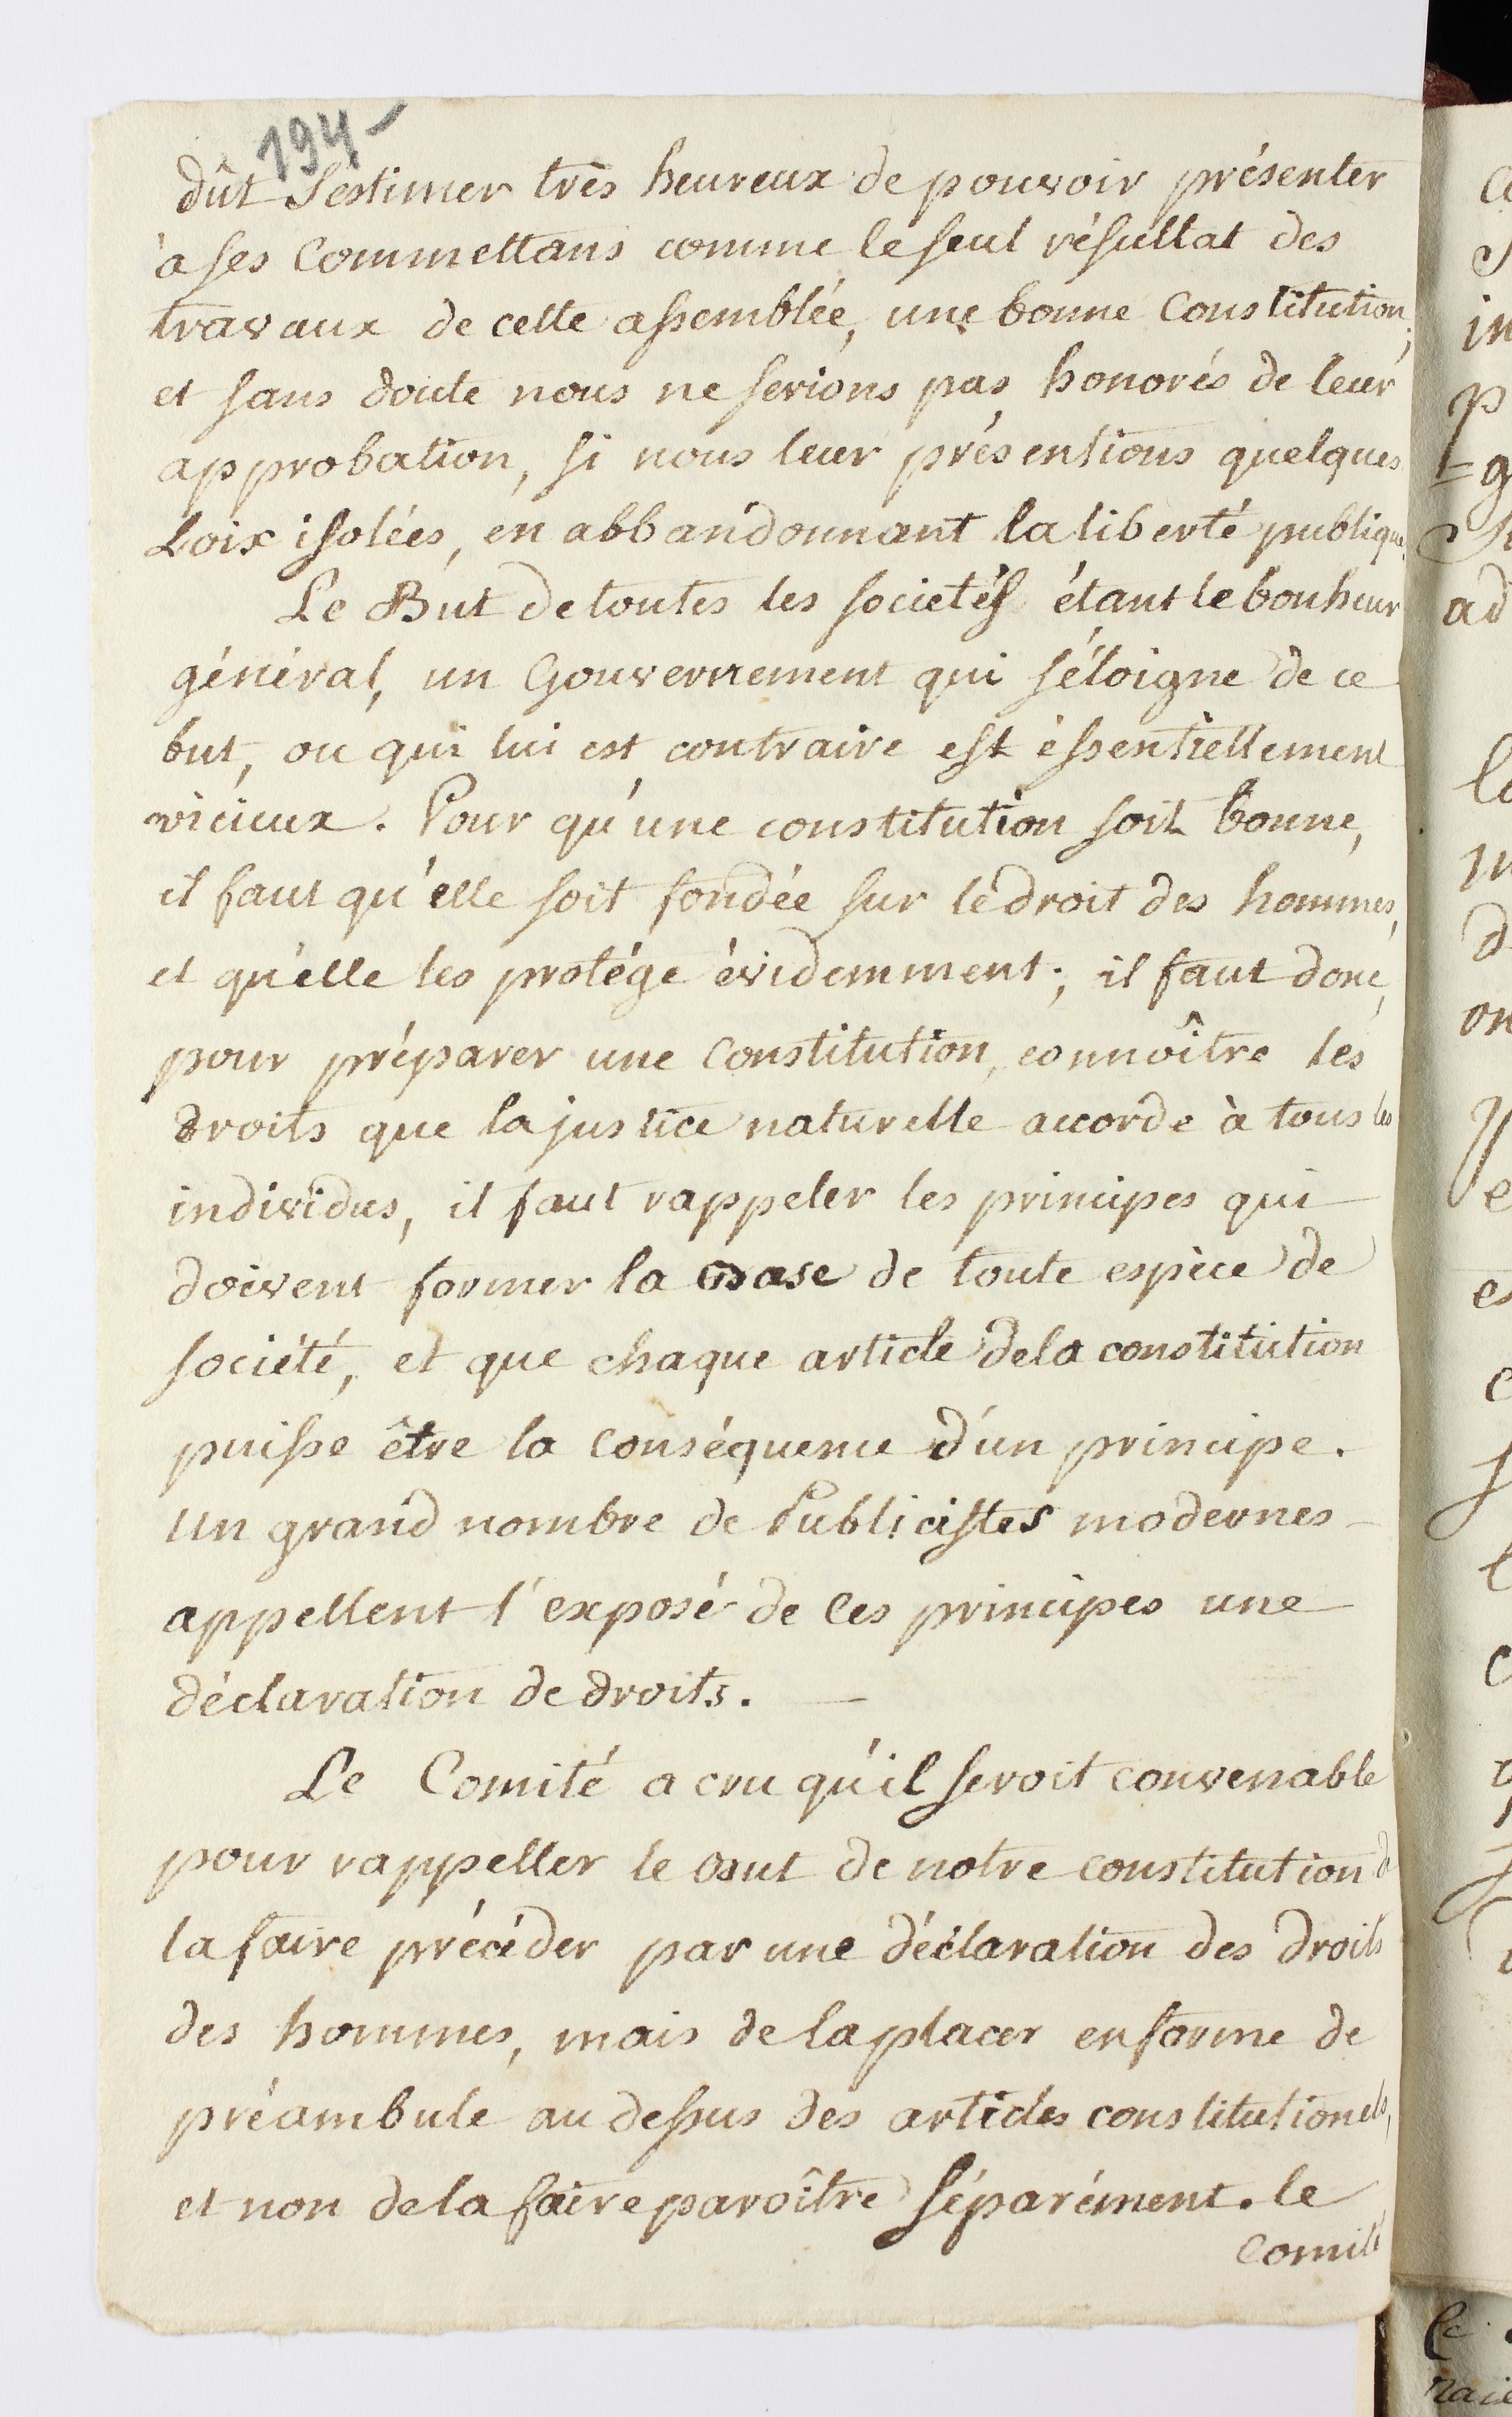 194
dût S'estimer très heureux de pouvoir présenter
à ses Commettans comme le seul résultat des
travaux de cette assemblée, une bonne Constitution;
et sans doute nous ne serions pas honorés de leur
approbation, si nous leur présentions quelques
Loix isolées, en abbandonnant la liberté publique.
Le But de toutes les societés étant le bonheur
général, un Gouvernement qui s'éloigne de ce
but, ou qui lui est contraire est éssentiellement
vicieux. Pour qu'une constitution soit bonne,
il faut qu'elle soit fondée sur le droit des hommes,
et qu'elle les protége évidemment; il faut donc,
pour préparer une Constitution, connoître les
droits que la justice naturelle accorde à tous les
individus, il faut rappeler les principes qui
doivent former la Base de toute espèce de
société, et que chaque article de la constitution
puisse être la conséquence d'un principe.
Un grand nombre de Publicistes modernes
appellent l'exposé de Ces principes une
déclaration de droits. —
Le Comité a cru qu'il seroit convenable
pour rappeller le But de notre constitution de
la faire précéder par une déclaration des droits
des hommes, mais de la placer en forme de
préambule au dessus des articles constitutionels,
et non de la faire paroître séparément. le
Comité